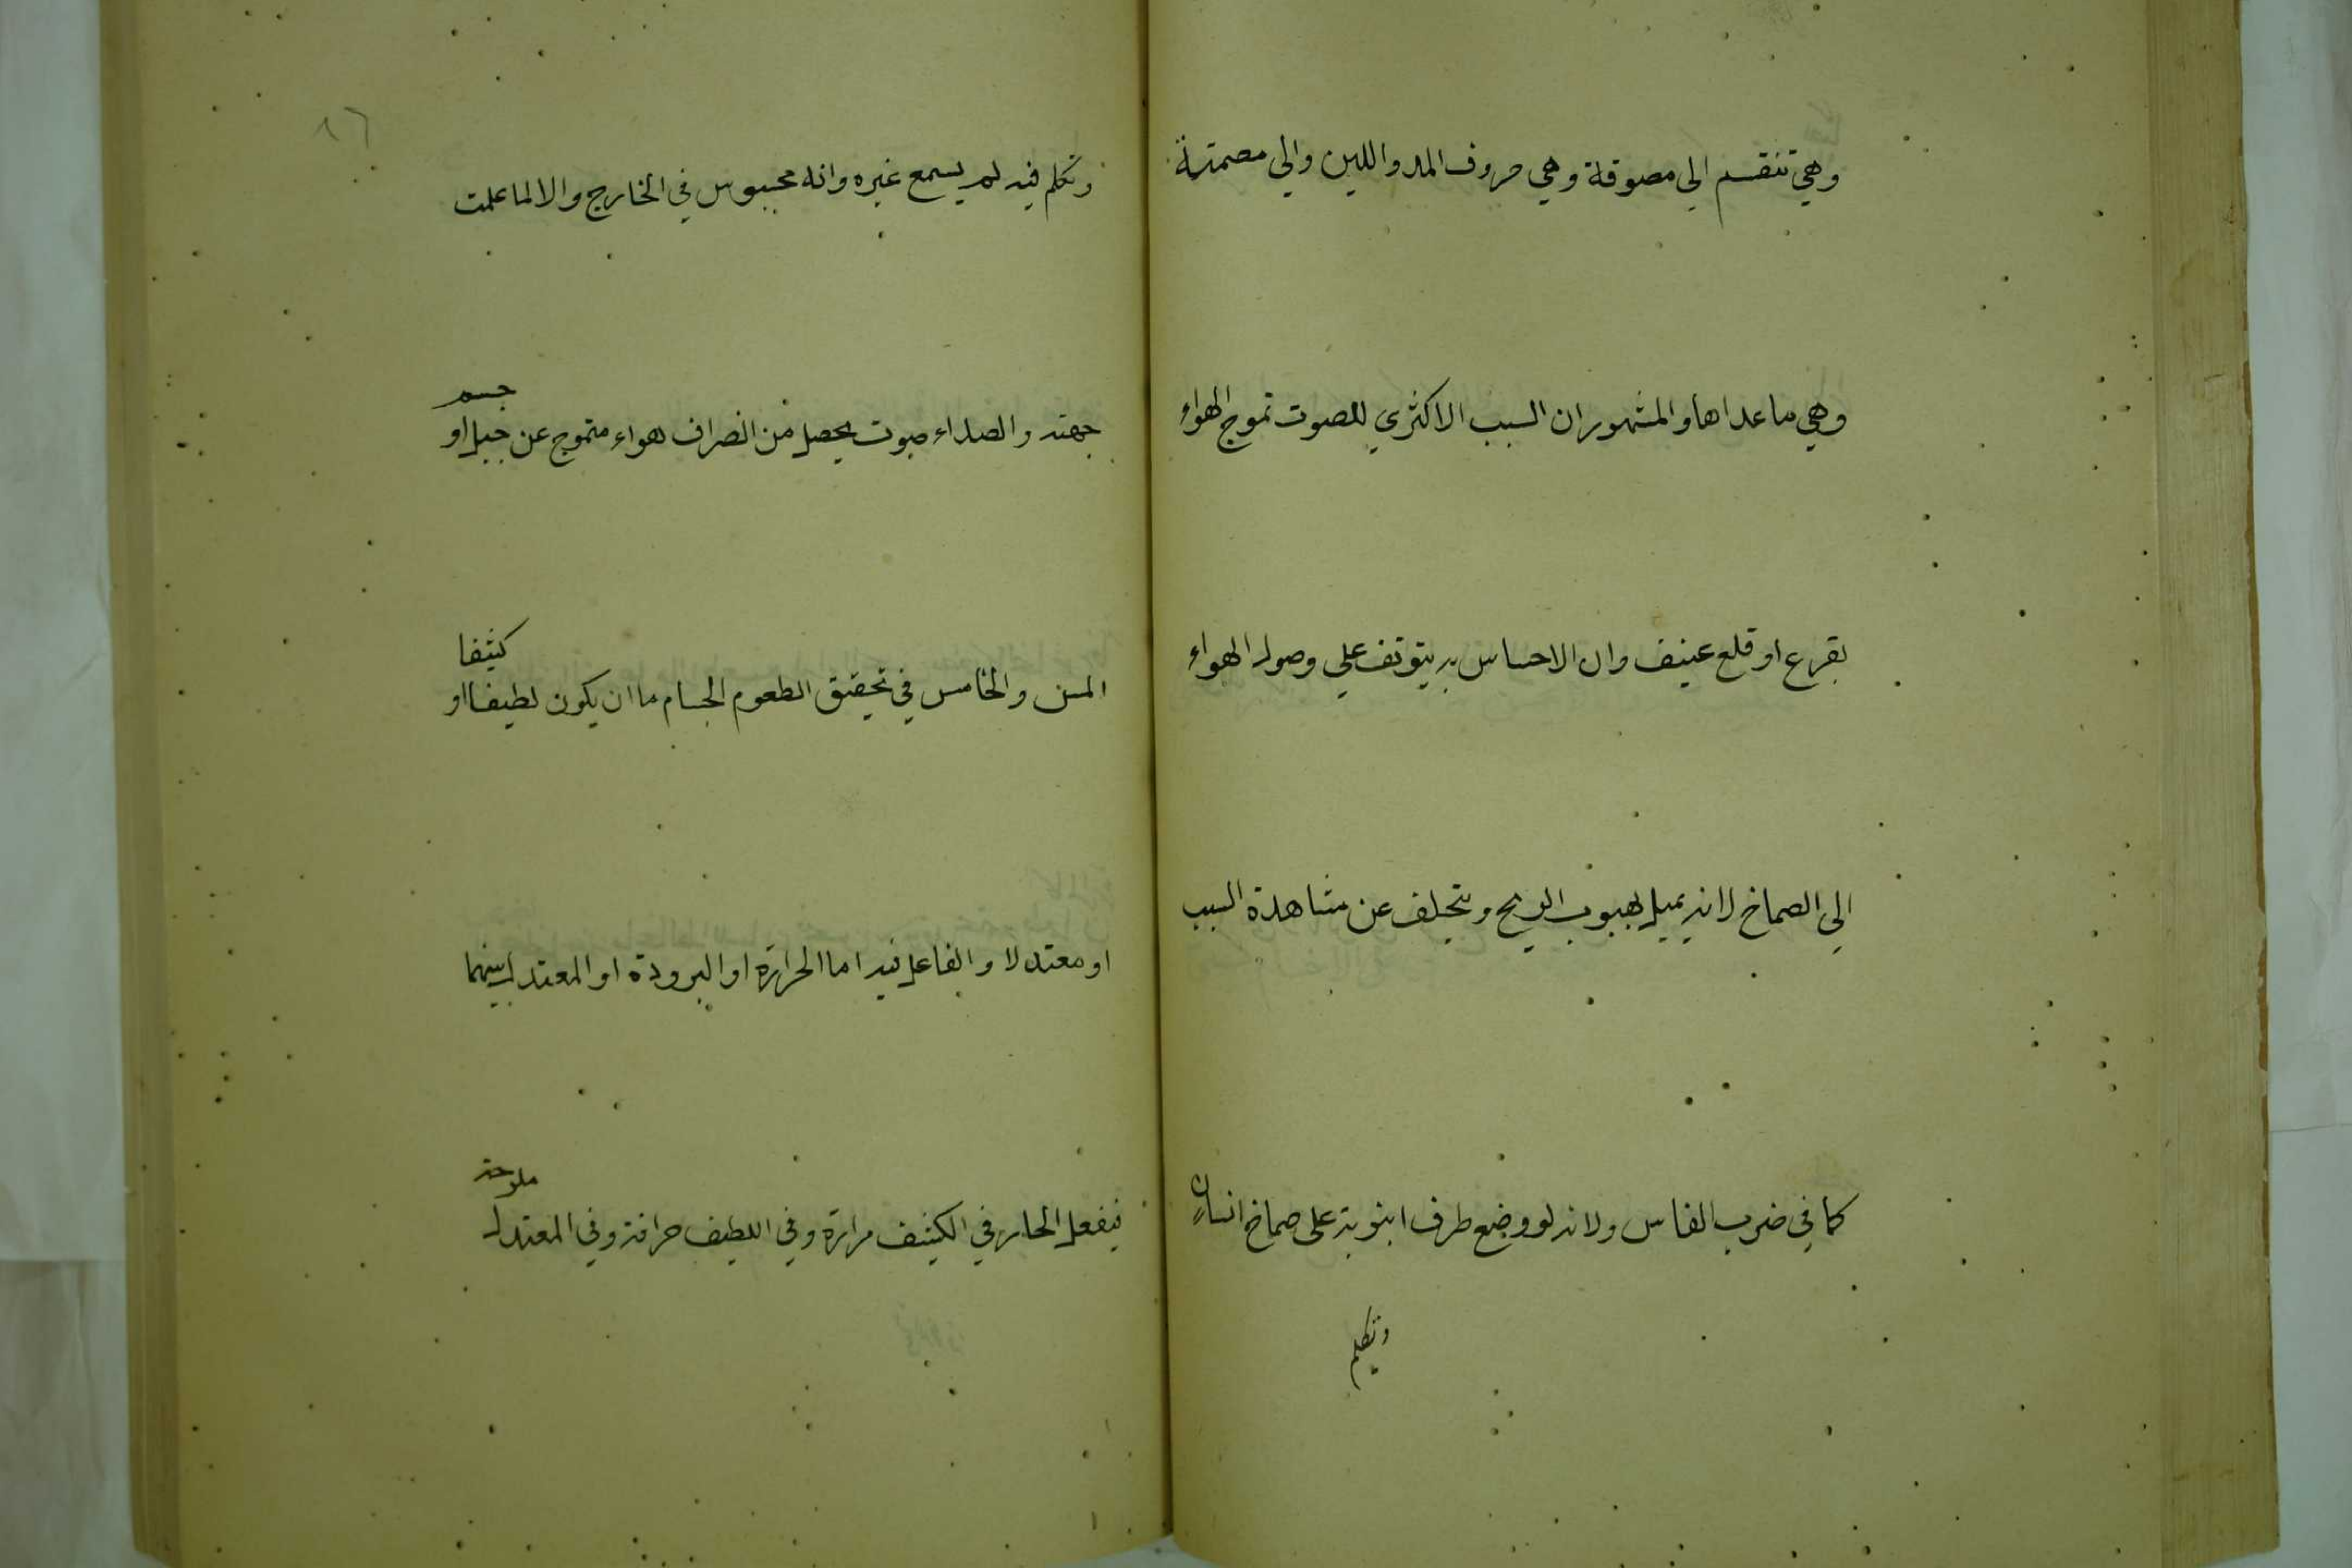 وهي تنقسم الي مصوقة وهي حروف المد واللين والي مصمتة
وهي ما عداها والمشهور ان السبب الاكثري للصوت تموج الهواء
بقرع او قلع عنيف وان الاحساس به يتوقف علي وصول الهواء
الي الصماخ لانه يميل بهبوب الريح ويتخلف عن مشاهدة السبب
كما في ضرب الفاس ولانه لو وضع طرف انبوبة على صماخ انسان
وتكلم
٨٦
وتكلم فيه لم يسمع غيره وانه محسوس في الخارج والا لما علمت
جهته والصداء صوت يحصل من انصراف هواء متموج عن جبل او جسم
املس والخامس في تحقيق الطعوم الجسام ما ان يكون لطيفا او كثيفا
او معتدلا والفاعل فيه اما الحرارة او البرودة او المعتدل بينهما
فيفعل الحار في الكثيف مرارة وفي اللطيف حرافة وفي المعتدل ملوحة